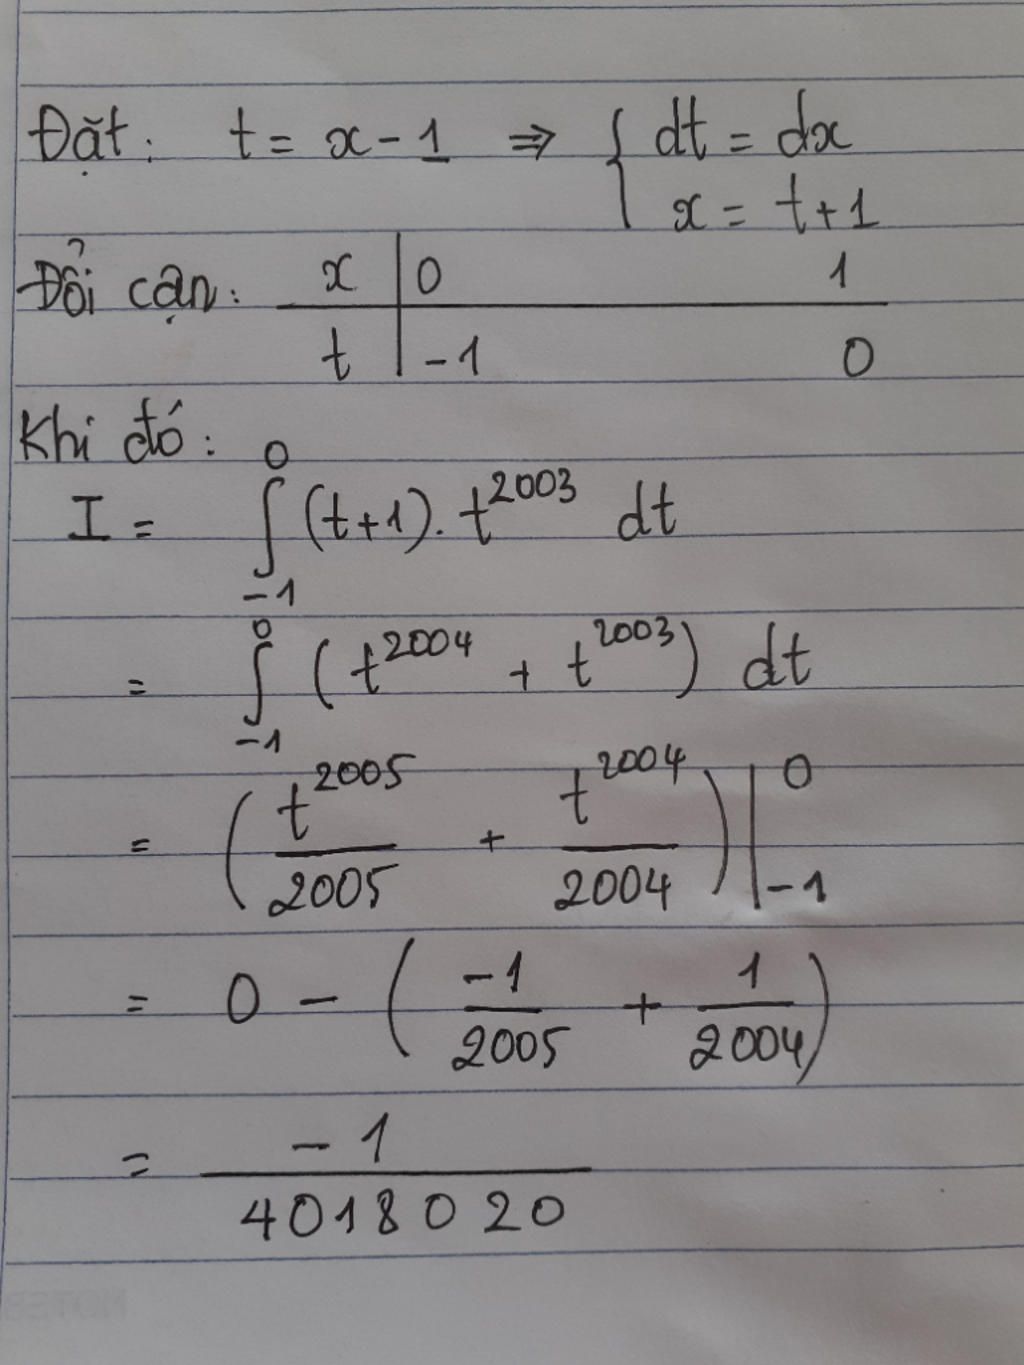 Đặt: t = x - 1 ⇒ { dt = dx
x = t + 1
Đổi cận: x | 0 1
t | -1 0
Khi đó:
I = ∫_{-1}^{0} (t+1). t^{2003} dt
= ∫_{-1}^{0} (t^{2004} + t^{2003}) dt
= (t^{2005}/2005 + t^{2004}/2004) |_{-1}^{0}
= 0 - (-1/2005 + 1/2004)
= -1/4018020